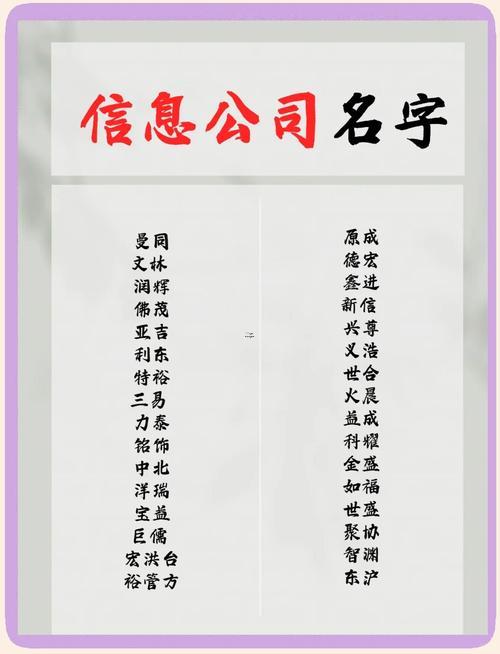 信息公司名字
曼同
文林
润辉
佛茂
亚吉
利东
特裕
三易
力泰
铭饰
中北
洋瑞
宝益
巨儒
宏洪台
裕管方
原成
德宏
鑫进
新信
兴尊
义浩
世合
火晨
益成
科耀
金盛
如福
世盛
聚协
智渊
东沪